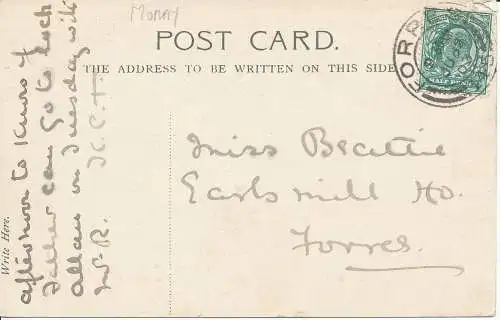 MORAY
POST CARD.
THE ADDRESS TO BE WRITTEN ON THIS SIDE
FORRES
HALF PENNY
Write Here.
afternoon to know if
Father can go to Loch
Allan on Tuesday with
Mr R. H.C.F.
Miss Beattie
Earls mill Ho.
Forres.